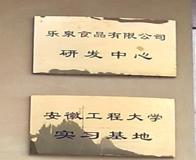 乐泉食品有限公司
研发中心
安徽工程大学
实习基地